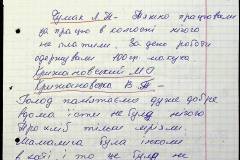 Думак Л.П - Тяжко працювали
за працю в колгоспі нічого
не платили. За день роботи
одержували 100гр. молука
Крижановський М О
Крижановська В П -
Голод пам'ятаємо дуже добре
вдома їсти не було нічого
Про хліб тільки мріяли.
Мамалига була інколи
в хаті і то це було не